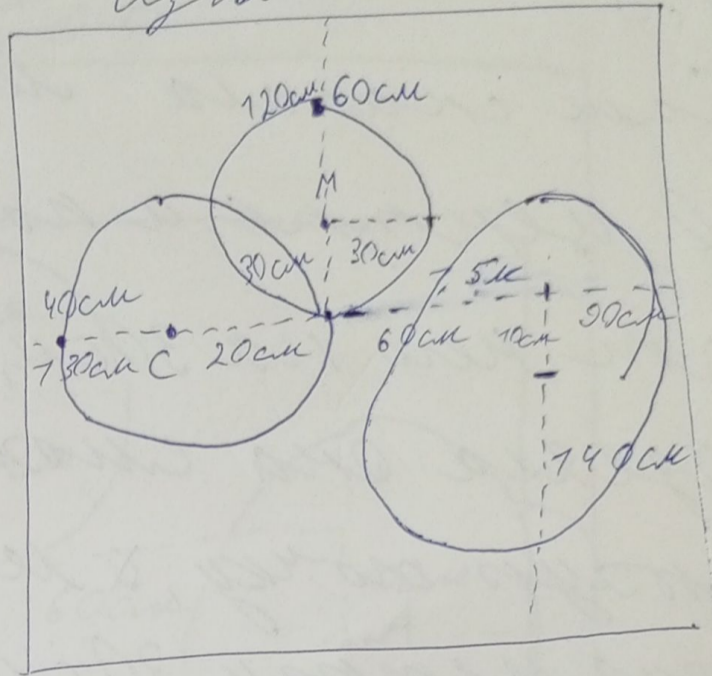 120см 60см
М
30см 30см
40см
130см С 20см
5м
60см 10см 90см
140см